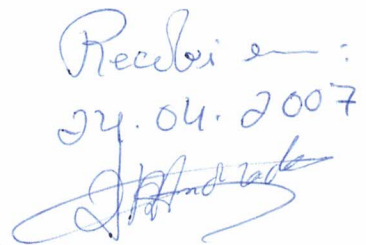 Recebi em:
24.04.2007
Andrade